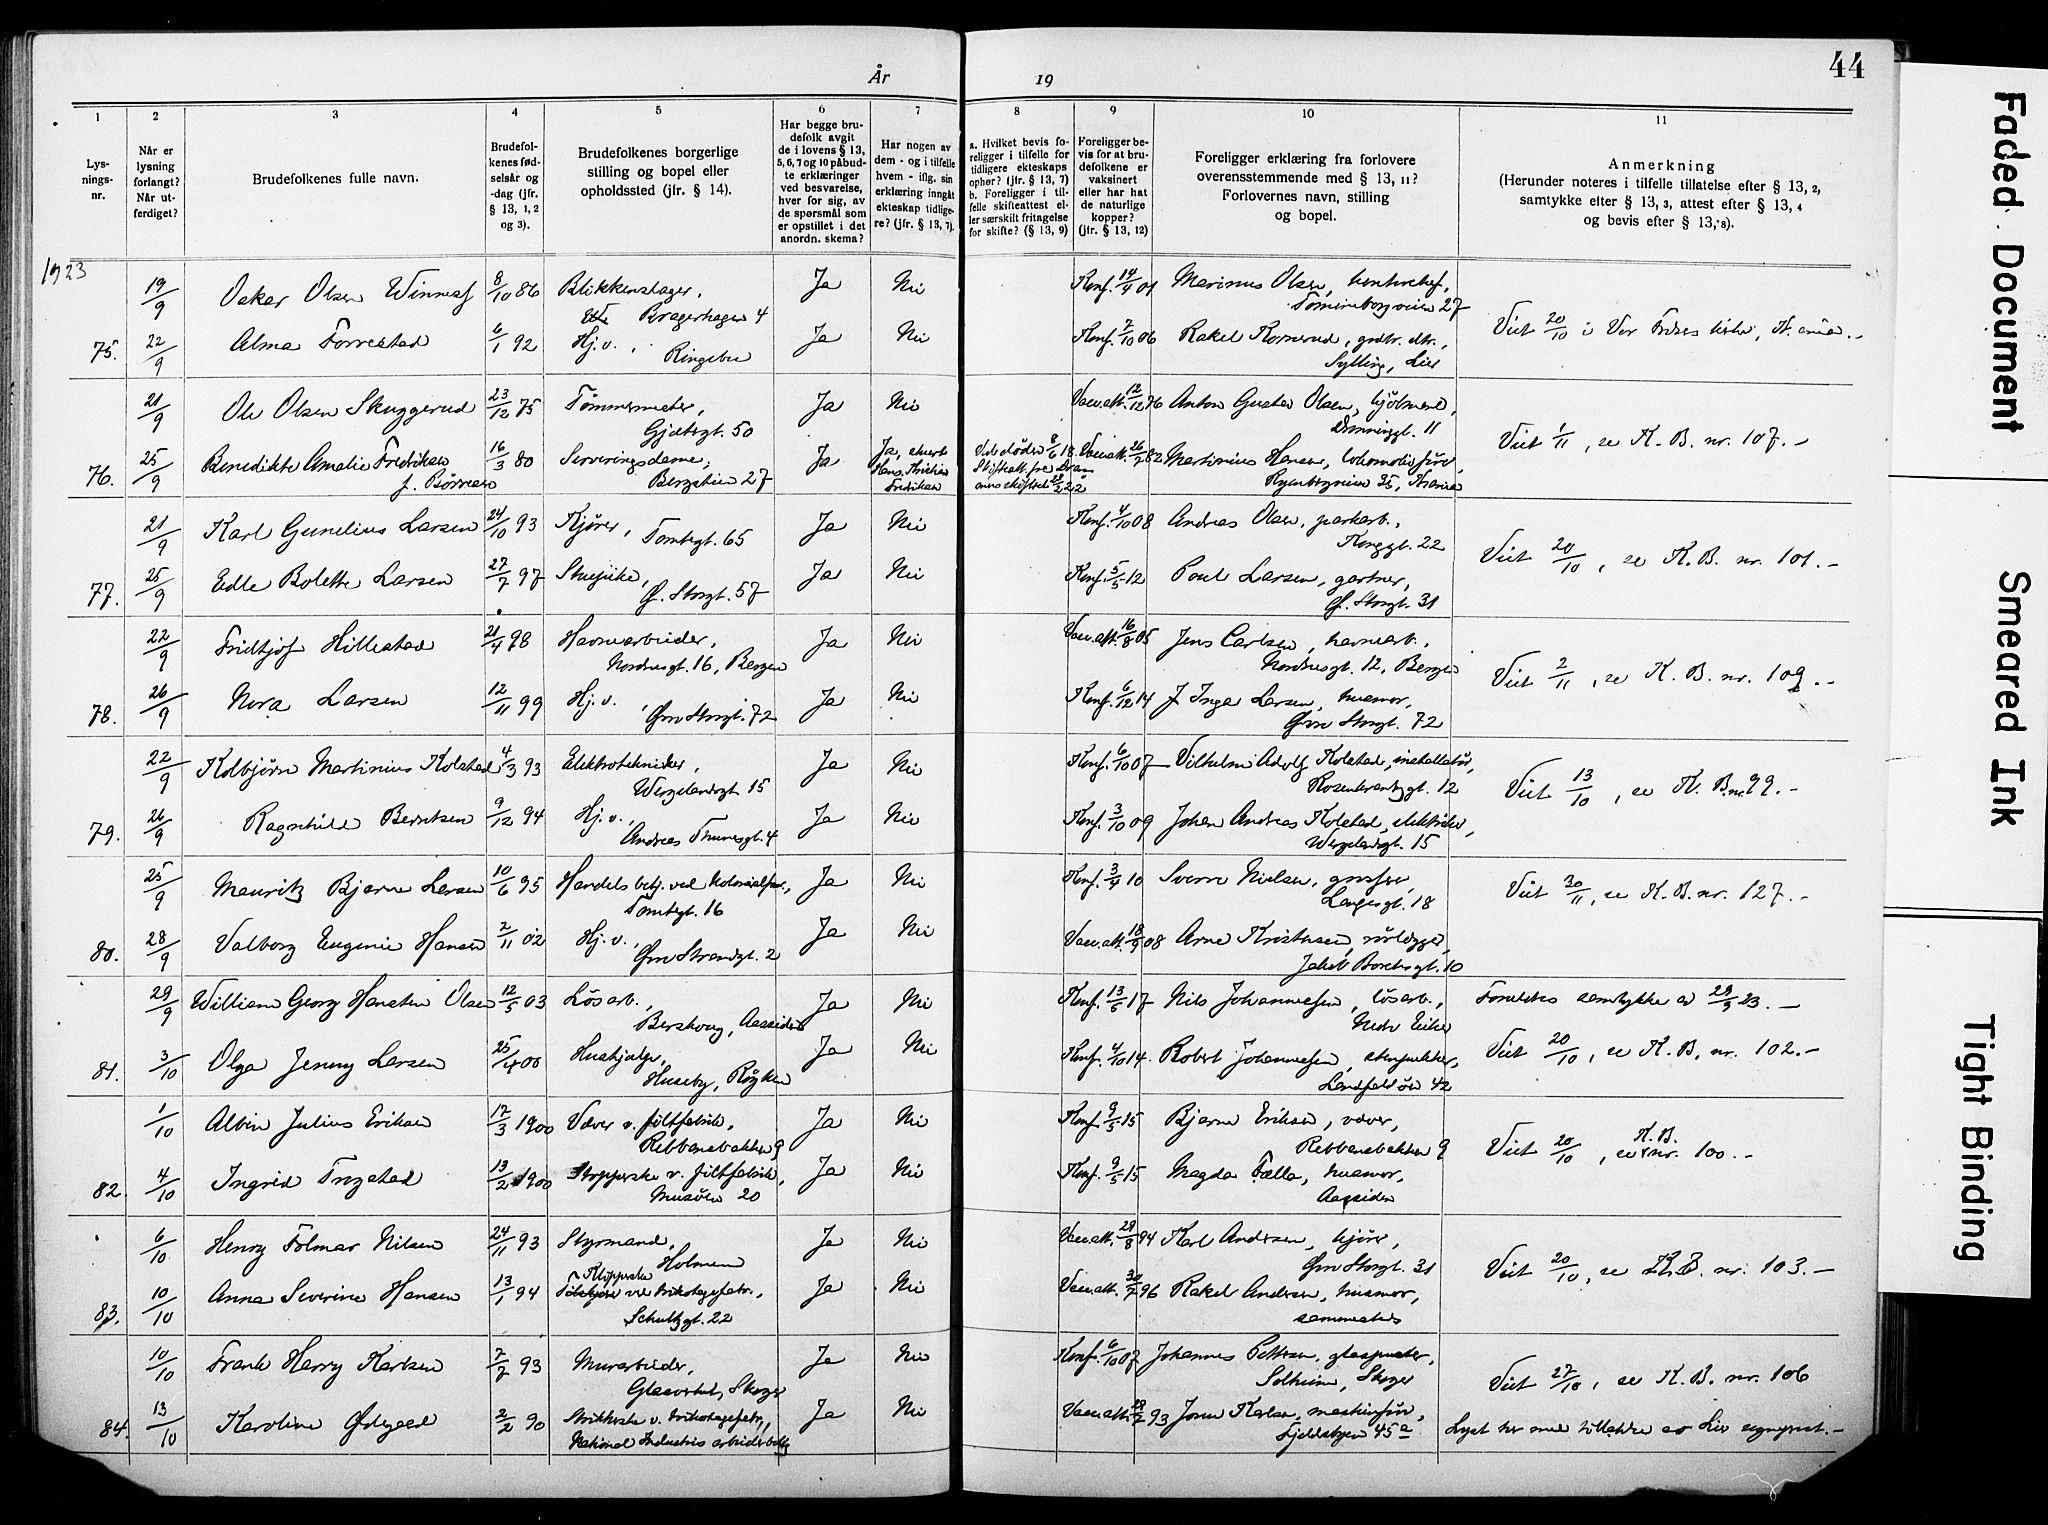 År 19
44
1 2 3 4 5 6 7 8 9 10 11
Lysningsnr.
Når er lysning forlangt? Når utferdiget?
Brudefolkenes fulle navn.
Brudefolkenes fødselsår og -dag (jfr. § 13, 1, 2 og 3).
Brudefolkenes borgerlige stilling og bopel eller opholdssted (jfr. § 14).
Har begge brudefolk avgit de i lovens § 13, 5, 6, 7 og 10 påbudte erklæringer ved besvarelse, hver for sig, av de spørsmål som er opstillet i det anordn. skema?
Har nogen av dem - og i tilfelle hvem - iflg. sin erklæring inngåt ekteskap tidligere? (jfr. § 13, 7).
a. Hvilket bevis foreligger i tilfelle for tidligere ekteskaps ophør? (jfr. § 13, 7) b. Foreligger i tilfelle skifteattest eller særskilt fritagelse for skifte? (§ 13, 9)
Foreligger bevis for at brudefolkene er vaksinert eller har hat de naturlige kopper? (jfr. § 13, 12)
Foreligger erklæring fra forlovere overensstemmende med § 13, 11? Forlovernes navn, stilling og bopel.
Anmerkning (Herunder noteres i tilfelle tillatelse efter § 13, 2, samtykke efter § 13, 3, attest efter § 13, 4 og bevis efter § 13, 8).
1923
19/9 Oskar Olsen 8/10 86 Blikkenslager, Ja Nei Konf. 14/4 01 Marinus Olsen, kontorchef,
Bragerhagen 4 27
75. 22/9 Alma Forrestad 6/1 92 Hj.v., Ringebu Ja Nei Konf. 7/10 06 Rakel Korsrud, grdbr. dtr., Sylling, Lier
Viet 20/10 i Vor Frues kirke, Kr.ania. -
21/9 Ole Olsen Skuggerud 23/12 75 Tømmermester, Gjætergt. 50 Ja Nei Vacc.att. 12/12 76 Anton Gustav Olsen, Dronninggt. 11
76. 25/9 Benedikte Amalie Fredriksen f. Børresen 16/3 80 Serveringsdame, Bergstien 27 Ja Ja, Hans Kristian Fredriksen Vacc.att. 26/7 82 Martinius Hansen, lokomotivfører, 35, Kr.ania
Viet 1/11, se K. B. nr. 107. -
21/9 Karl Gunelius Larsen 24/10 93 Kjører, Tomtegt. 65 Ja Nei Konf. 4/10 08 Andreas Olsen, parkarb., Konggt. 22
77. 25/9 Edle Bolette Larsen 27/7 97 Stuepike, Ø. Storgt. 57 Ja Nei Konf. 5/5 12 Poul Larsen, gartner, Ø. Storgt. 31
Viet 20/10, se K. B. nr. 101. -
22/9 Fridtjof Hillestad 21/4 98 Havnearbeider, Nordnesgt. 16, Bergen Ja Nei Vacc.att. 16/8 05 Jens Carlsen, havnearb., Nordnesgt. 12, Bergen
78. 26/9 Nora Larsen 12/11 99 Hj.v., Øvre Storgt. 72 Ja Nei Konf. 6/12 14 Inga Larsen, husmor, Øvre Storgt. 72
Viet 2/11, se K. B. nr. 109. -
22/9 Kolbjørn Martinius Kolstad 4/3 93 Elektrotekniker, Wergelandsgt. 15 Ja Nei Konf. 6/10 07 Vilhelm Adolf Kolstad, installatør, Rosenkrantzgt. 12
79. 26/9 Ragnhild Berntsen 9/12 94 Hj.v., Andreas Thunesgt. 4 Ja Nei Konf. 3/10 09 Johan Andreas Kolstad, elektriker, Wergelandsgt. 15
Viet 13/10, se K. B. nr. 99. -
25/9 Mauritz Bjarne Larsen 10/6 95 Handelsbetj. ved kolonialforr., Tomtegt. 16 Ja Nei Konf. 3/4 10 Sverre Nielsen, Langesgt. 18
80. 28/9 Valborg Eugenie Hansen 2/11 02 Hj.v., Øvre Strandgt. 2 Ja Nei Vacc.att. 18/9 08 Arne Kristensen, rørlegger, Jakob Borchsgt. 10
Viet 30/11, se K. B. nr. 127. -
29/9 William Georg Hanstin Olsen 12/5 03 Løsarb., Berskoug, Aassiden Ja Nei Konf. 13/5 17 Nils Johannessen, løsarb., Nedre Eiker
Foreldres samtykke av 29/9 23. -
81. 3/10 Olga Jenny Larsen 25/4 00 Hushjelp, Huseby, Røyken Ja Nei Konf. 4/10 14. Robert Johannessen, Landfaldøen 42
Viet 20/10, se K. B. nr. 102. -
1/10 Albin Julius Eriksen 17/3 1900 Væver v. filtfabrik, Ribbanebakken 9 Ja Nei Konf. 9/5 15 Bjarne Eriksen, væver, Ribbanebakken 9
82. 4/10 Ingrid Tryestad 13/2 1900 Stopperske v. filtfabrik, Musøen 20 Ja Nei Konf. 9/5 15 Magda Fælla, husmor, Aassiden
Viet 20/10, se K. B. nr. 100. -
6/10 Henry Folmar Nilsen 24/11 93 Styrmand, Holmen Ja Nei Vacc.att. 29/8 94 Karl Andersen, kjører, Øvre Storgt. 31
83. 10/10 Anna Severine Hansen 13/1 94 Klipperske ved trikotagefabr., Schultzgt. 22 Ja Nei Vacc.att. 30/7 96 Rakel Andersen, husmor, sammesteds
Viet 20/10, se K. B. nr. 103. -
10/10 Frank Harry Karlsen 7/7 93 Murarbeider, Glassverket, Skoger Ja Nei Konf. 6/10 07 Johannes Pettersen, glaspuster, Solheim, Skoger
84. 13/10 Karoline Ødegaard 2/2 90 Strikkerske v. trikotagefabr., National Industris arbeiderbolig Ja Nei Vacc.att. 28/2 93 Karlsen, maskinfører, 45a
Viet 27/10, se K. B. nr. 106
Lyst her med tillatelse av Lier sogneprest. -
Faded Document
Smeared Ink
Tight Binding